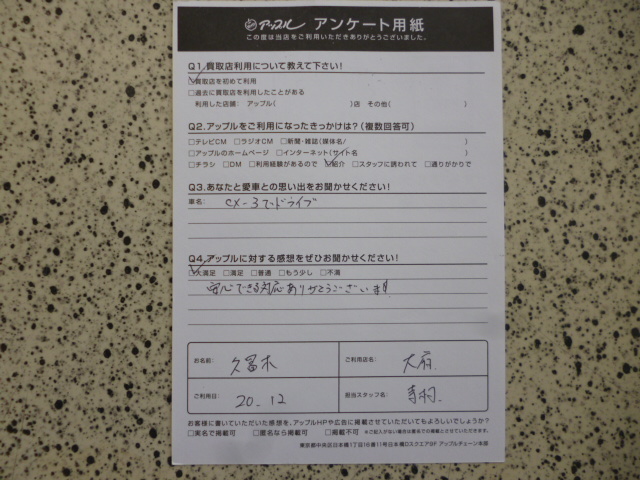 アップル アンケート用紙
この度は当店をご利用いただきありがとうございました。
Q1.買取店利用について教えて下さい!
□買取店を初めて利用
□過去に買取店を利用したことがある
利用した店舗: アップル( )店 その他( )
Q2.アップルをご利用になったきっかけは?(複数回答可)
□テレビCM □ラジオCM □新聞・雑誌(媒体名/ )
□アップルのホームページ □インターネット(サイト名 )
□チラシ □DM □利用経験があるので □紹介 □スタッフに誘われて □通りがかりで
Q3.あなたと愛車との思い出をお聞かせください!
車名: CX-3でドライブ
Q4.アップルに対する感想をぜひお聞かせください!
□大満足 □満足 □普通 □もう少し □不満
安心できる対応ありがとうございます!
お名前: 久富木 ご利用店名: 大府
ご利用日: 20.12 担当スタッフ名: 寺村
お客様に書いていただいた感想を、アップルHPや広告に掲載させていただいてもよろしいでしょうか?
□実名で掲載可 □匿名なら掲載可 □掲載不可 ※ご記入がない場合は匿名での掲載とさせていただきます。
東京都中央区日本橋1丁目16番11号日本橋Dスクエア9F アップルチェーン本部